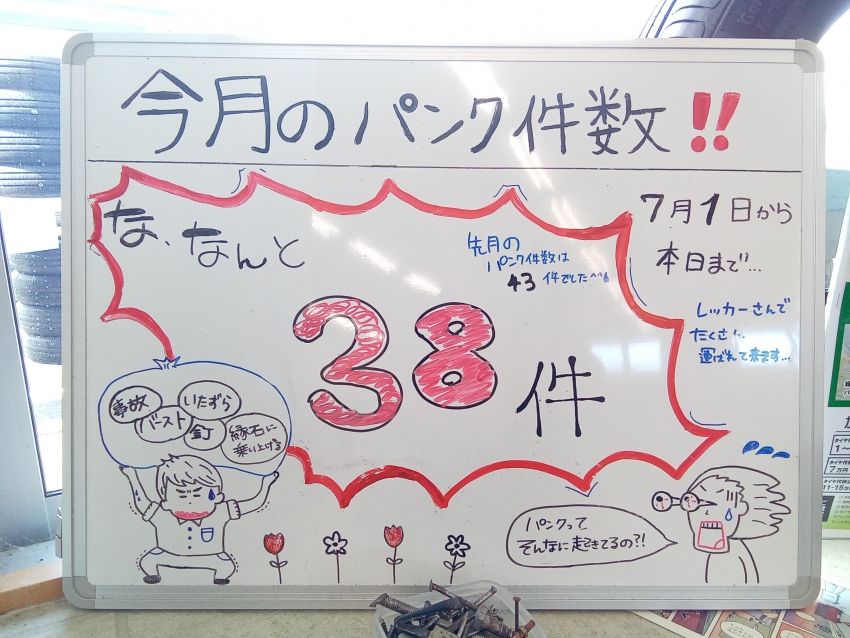 今月のパンク件数!!
な、なんと
先月の
パンク件数は
43 件でした^^;
38件
7月1日から
本日まで…
レッカーさんで
たくさん
運ばれて来ます…
事故
いたずら
バースト
釘
縁石に
乗り上げる
パンクって
そんなに起きてるの?!
1～
7万円
11-15万